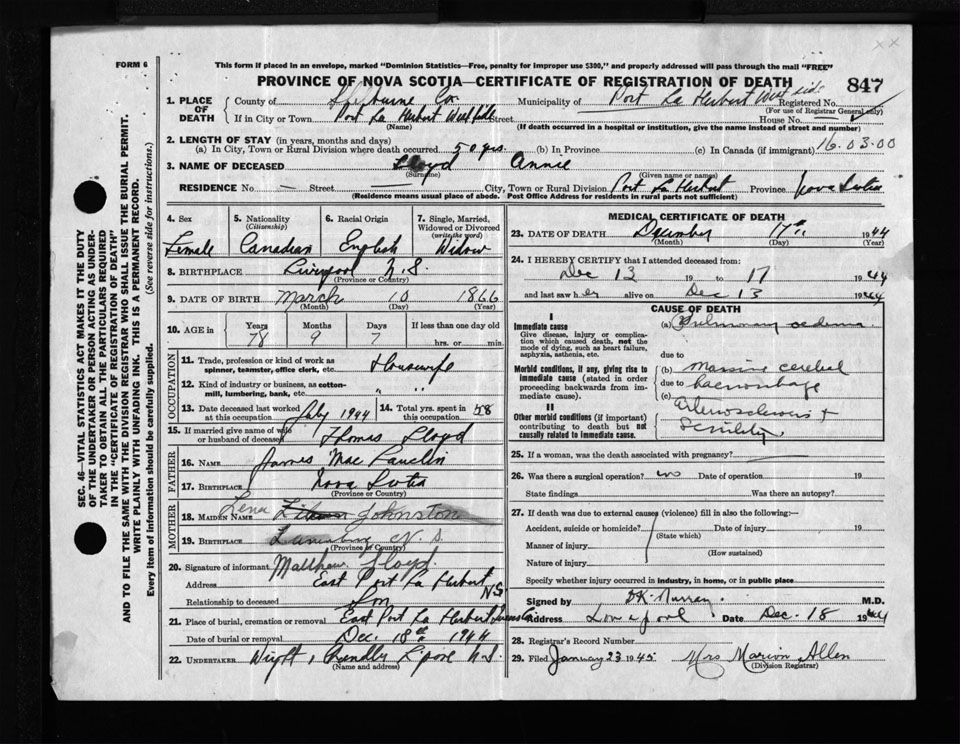 FORM 6
This form if placed in an envelope, marked "Dominion Statistics—Free, penalty for improper use $300," and properly addressed will pass through the mail "FREE"
PROVINCE OF NOVA SCOTIA—CERTIFICATE OF REGISTRATION OF DEATH 847
1. PLACE OF DEATH
County of Shelburne Co. Municipality of Port La Herbert West side Registered No.
(For use of Registrar General only)
If in City or Town Port La Herbert West Side Street House No.
(Name) (If death occurred in a hospital or institution, give the name instead of street and number)
2. LENGTH OF STAY (in years, months and days)
(a) In City, Town or Rural Division where death occurred 50 yrs. (b) In Province (c) In Canada (if immigrant) 16.03.00
3. NAME OF DECEASED Lloyd Annie
(Surname) (Given name or names)
RESIDENCE No. — Street — City, Town or Rural Division Port La Herbert Province Nova Scotia
(Residence means usual place of abode. Post Office Address for residents in rural parts not sufficient)
4. Sex Female
5. Nationality (Citizenship) Canadian
6. Racial Origin English
7. Single, Married, Widowed or Divorced (write the word) Widow
8. BIRTHPLACE Liverpool N.S.
(Province or Country)
9. DATE OF BIRTH March 10 1866
(Month) (Day) (Year)
10. AGE in Years Months Days If less than one day old
78 9 7 hrs. or min.
OCCUPATION
11. Trade, profession or kind of work as spinner, teamster, office clerk, etc. Housewife
12. Kind of industry or business, as cotton-mill, lumbering, bank, etc. " "
13. Date deceased last worked at this occupation July 1944
14. Total yrs. spent in this occupation 58
15. If married give name of wife or husband of deceased Thomas Lloyd
FATHER
16. NAME James Mac Lauclin
17. BIRTHPLACE Nova Scotia
(Province or Country)
MOTHER
18. MAIDEN NAME Lena Johnston
19. BIRTHPLACE Lunenburg N.S.
(Province of Country)
20. Signature of informant Matthew Lloyd
Address East Port La Herbert N.S.
Relationship to deceased Son
21. Place of burial, cremation or removal East Port La Herbert
Date of burial or removal Dec. 18th 1944
22. UNDERTAKER Wight, Chandler L'pool N.S.
(Name and address)
MEDICAL CERTIFICATE OF DEATH
23. DATE OF DEATH December 17th 1944
(Month) (Day) (Year)
24. I HEREBY CERTIFY that I attended deceased from:
Dec 13 19 to 17 1944
and last saw her alive on Dec 13 1944
CAUSE OF DEATH
I
Immediate cause
Give disease, injury or complication which caused death, not the mode of dying, such as heart failure, asphyxia, asthenia, etc.
(a) Pulmonary oedema
due to
Morbid conditions, if any, giving rise to immediate cause (stated in order proceeding backwards from immediate cause).
(b) Massive cerebral
due to haemorrhage
(c)
II
Other morbid conditions (if important) contributing to death but not causally related to immediate cause.
Arteriosclerosis +
Senility
25. If a woman, was the death associated with pregnancy?
26. Was there a surgical operation? no Date of operation 19
State findings Was there an autopsy?
27. If death was due to external causes (violence) fill in also the following:—
Accident, suicide or homicide? Date of injury 19
(State which)
Manner of injury
(How sustained)
Nature of injury
Specify whether injury occurred in industry, in home, or in public place
Signed by Murray M.D.
Address Liverpool Date Dec. 18 1944
28. Registrar's Record Number
29. Filed January 23 1945 Mrs Marion Allen
(Division Registrar)
SEC. 46—VITAL STATISTICS ACT MAKES IT THE DUTY
OF THE UNDERTAKER OR PERSON ACTING AS UNDER-
TAKER TO OBTAIN ALL THE PARTICULARS REQUIRED
IN THE "CERTIFICATE OF REGISTRATION OF DEATH"
AND TO FILE THE SAME WITH THE DIVISION REGISTRAR WHO SHALL ISSUE THE BURIAL PERMIT.
WRITE PLAINLY WITH UNFADING INK. THIS IS A PERMANENT RECORD.
Every item of information should be carefully supplied. (See reverse side for instructions.)